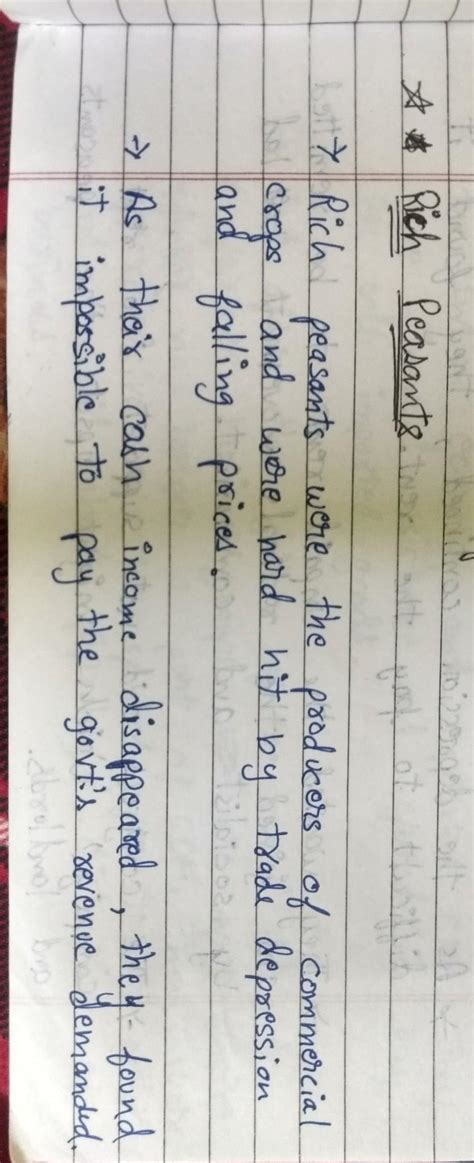 Rich Peasants.
→ Rich peasants were the producers of commercial
crops and were hard hit by trade depression
and falling prices.
→ As their cash income disappeared, they found
it impossible to pay the govt's revenue demanded.